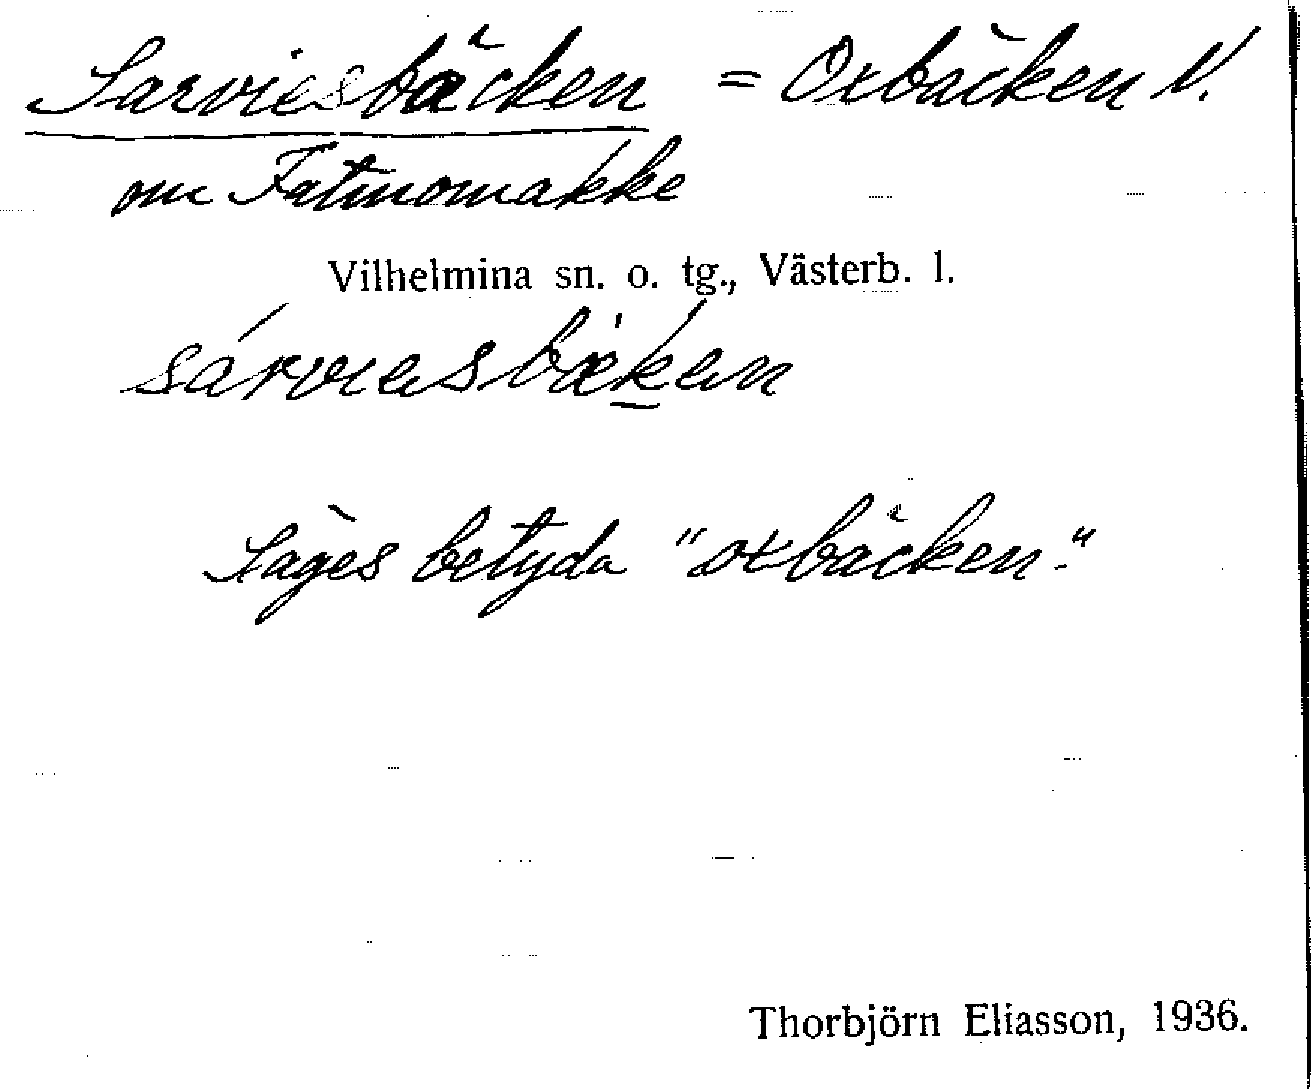 Sarviesbäcken = Oxbäcken V.
om Fatmomakke
Vilhelmina sn. o. tg., Västerb. l.
sárviesbæken
Sages betyda "oxbäcken."
Thorbjörn Eliasson, 1936.